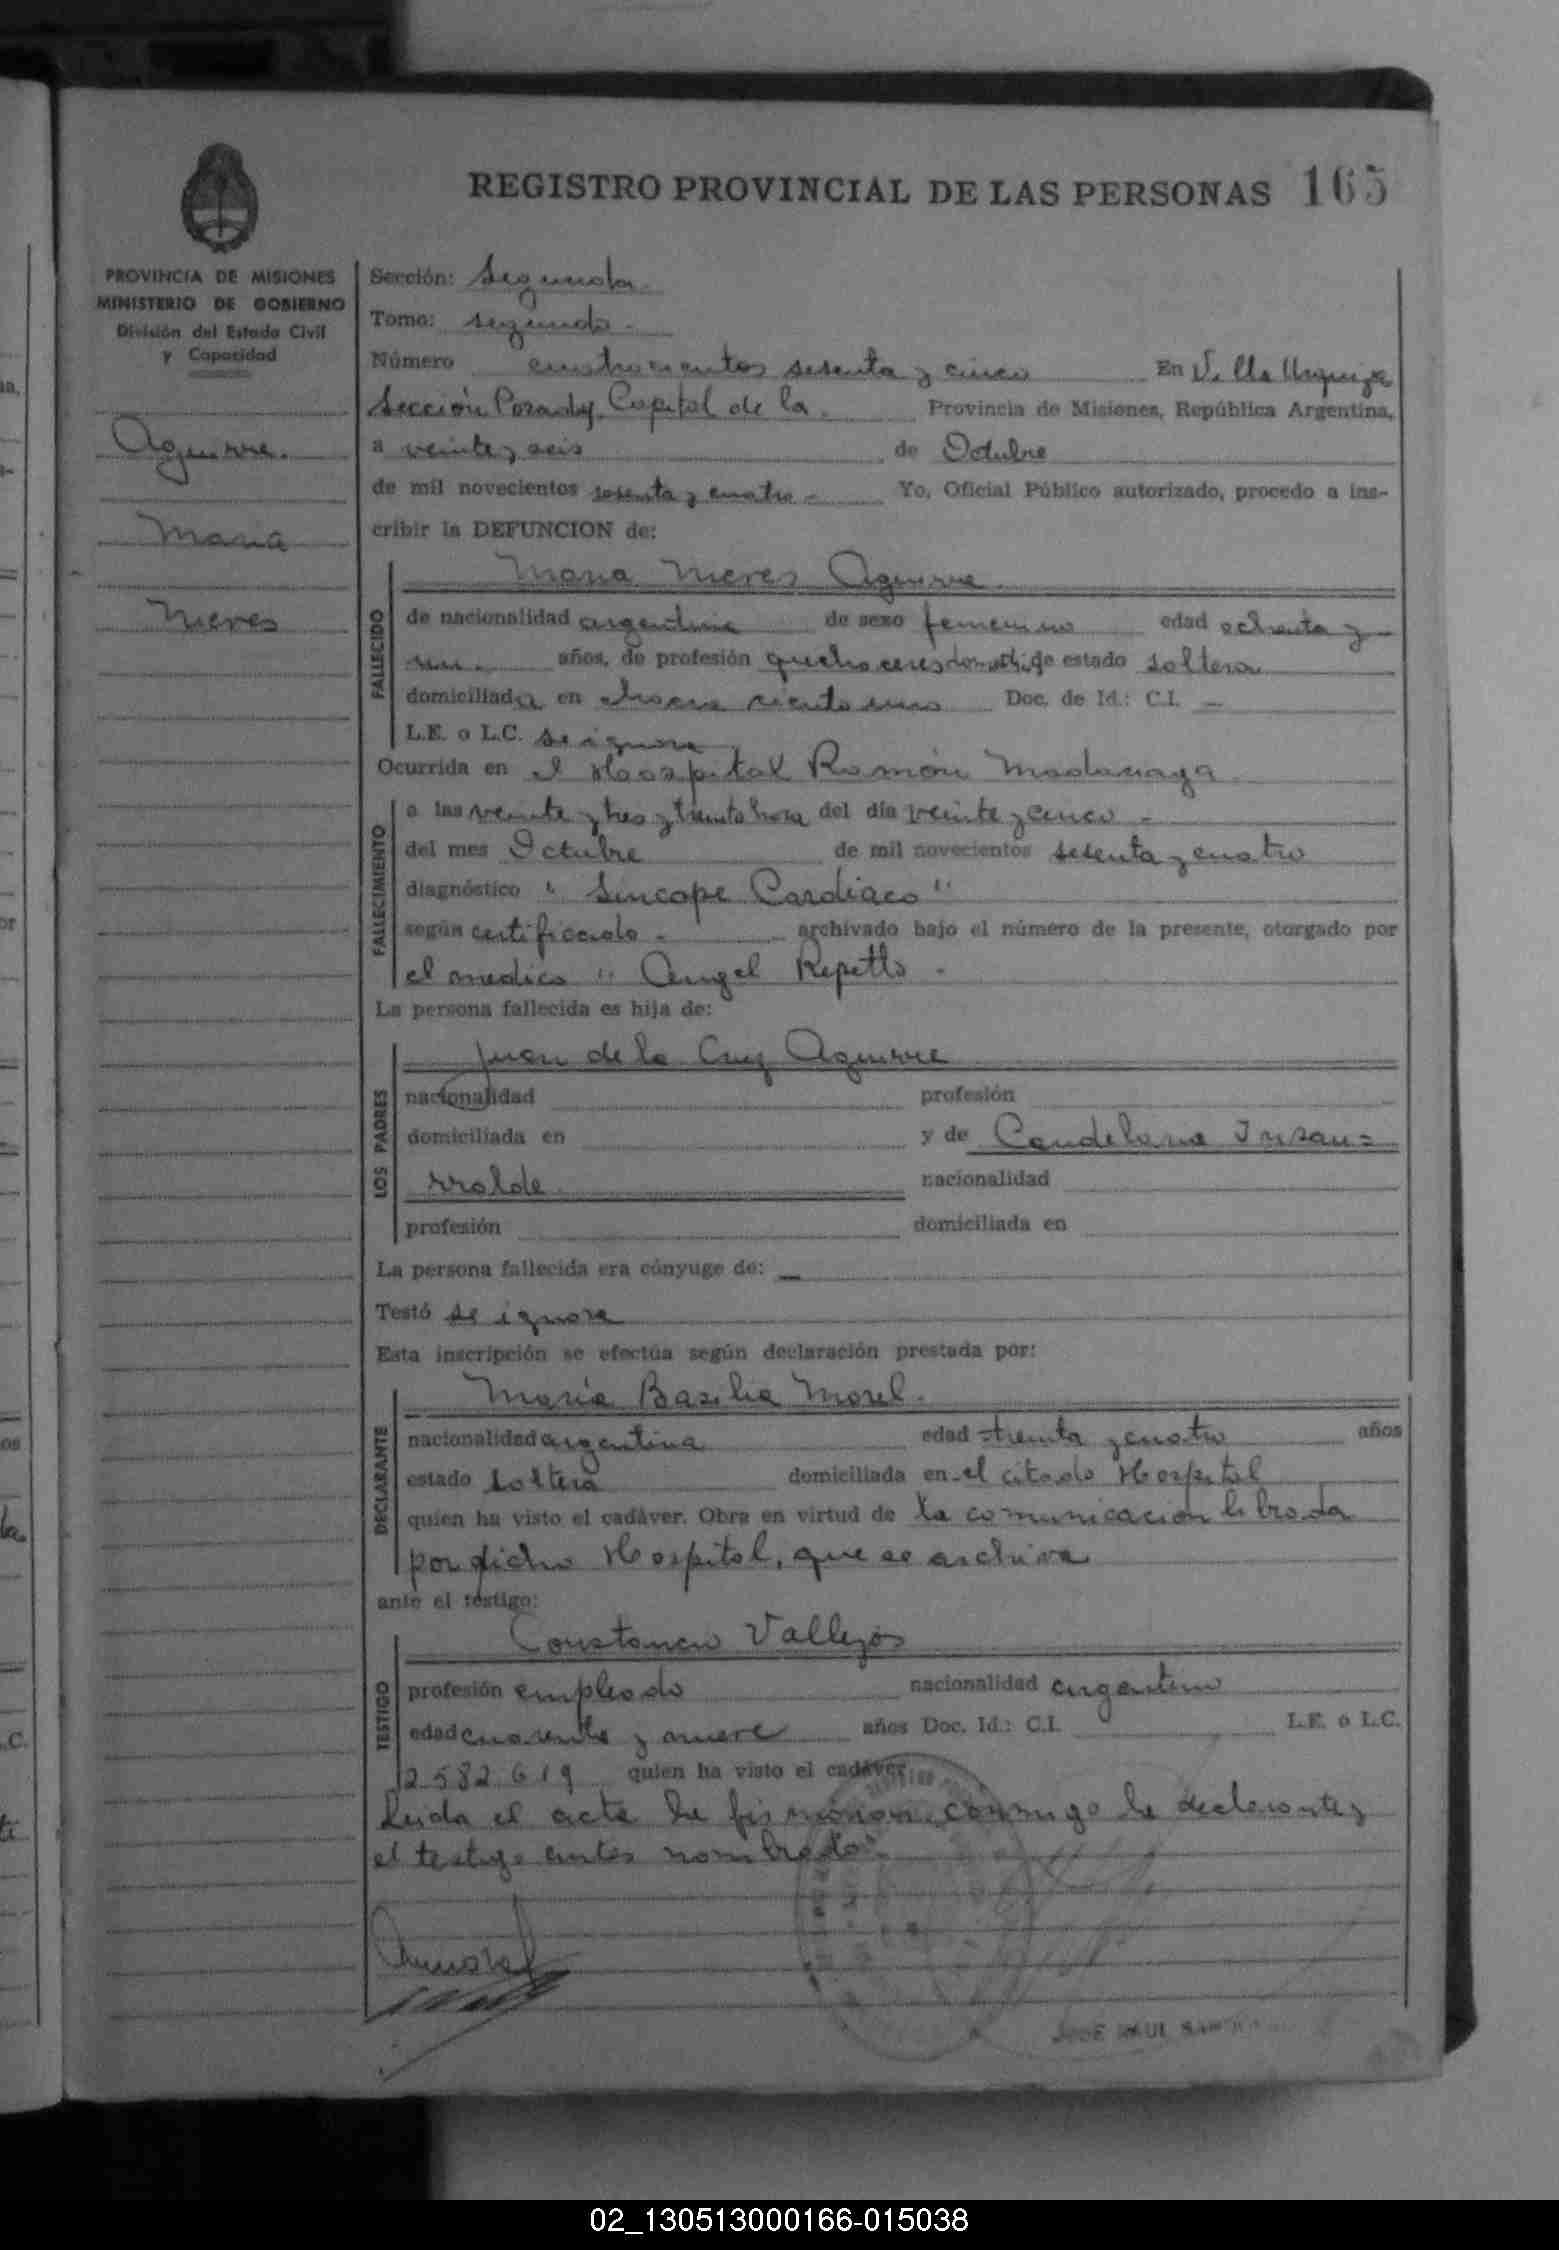 REGISTRO PROVINCIAL DE LAS PERSONAS 165
PROVINCIA DE MISIONES
MINISTERIO DE GOBIERNO
División del Estado Civil
y Capacidad
Aguirre.
Maria
Nieves
Sección: Segunda.
Tomo: segundo.
Número cuatrocientos sesenta y cinco En Villa Urquiza
Sección Posadas, Capital de la Provincia de Misiones, República Argentina,
a veinte y seis de Octubre
de mil novecientos sesenta y cuatro - Yo, Oficial Público autorizado, procedo a ins-
cribir la DEFUNCION de:
Maria Nieves Aguirre
FALLECIDO
de nacionalidad argentina de sexo femenino edad ochenta y
un. años, de profesión quehaceres domest. de estado soltera
domiciliada en chacra ciento uno Doc. de Id.: C.I. —
L.E. o L.C. se ignora
Ocurrida en el Hospital Ramón Madariaga
FALLECIMIENTO
a las veinte y tres y treinta hora del día veinte y cinco -
del mes Octubre de mil novecientos sesenta y cuatro
diagnóstico " Sincope Cardiaco "
según certificado - archivado bajo el número de la presente, otorgado por
el medico " Angel Repetto -
La persona fallecida es hija de:
LOS PADRES
Juan de la Cruz Aguirre
nacionalidad profesión
domiciliada en y de Candelaria Insau=
rralde nacionalidad
profesión domiciliada en
La persona fallecida era cónyuge de: —
Testó se ignora
Esta inscripción se efectúa según declaración prestada por:
DECLARANTE
María Basilia Morel.
nacionalidad argentina edad treinta y cuatro años
estado soltera domiciliada en el citado Hospital
quien ha visto el cadáver. Obra en virtud de la comunicación librada
por dicho Hospital, que se archiva
ante el testigo:
TESTIGO
Constancio Vallejos
profesión empleado nacionalidad argentino
edad cuarenta y nueve años Doc. Id.: C.I. L.E. o L.C.
2.582.619 quien ha visto el cadáver
Leida el acta la firmaron conmigo la declarante y
el testigo antes nombrado.
JOSE RAUL
02_130513000166-015038